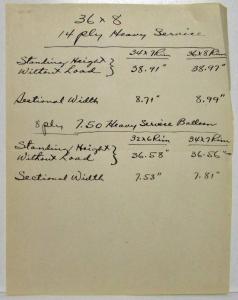 36 x 8
14 ply Heavy Service
34x7 Rim 36x8 Rim
Standing Height
Without Load } 38.91" 38.97"
Sectional Width 8.71" 8.99"
8 ply 7.50 Heavy Service Balloon
32x6 Rim 34x7 Rim
Standing Height
Without Load } 36.58" 36.56"
Sectional Width 7.53" 7.81"